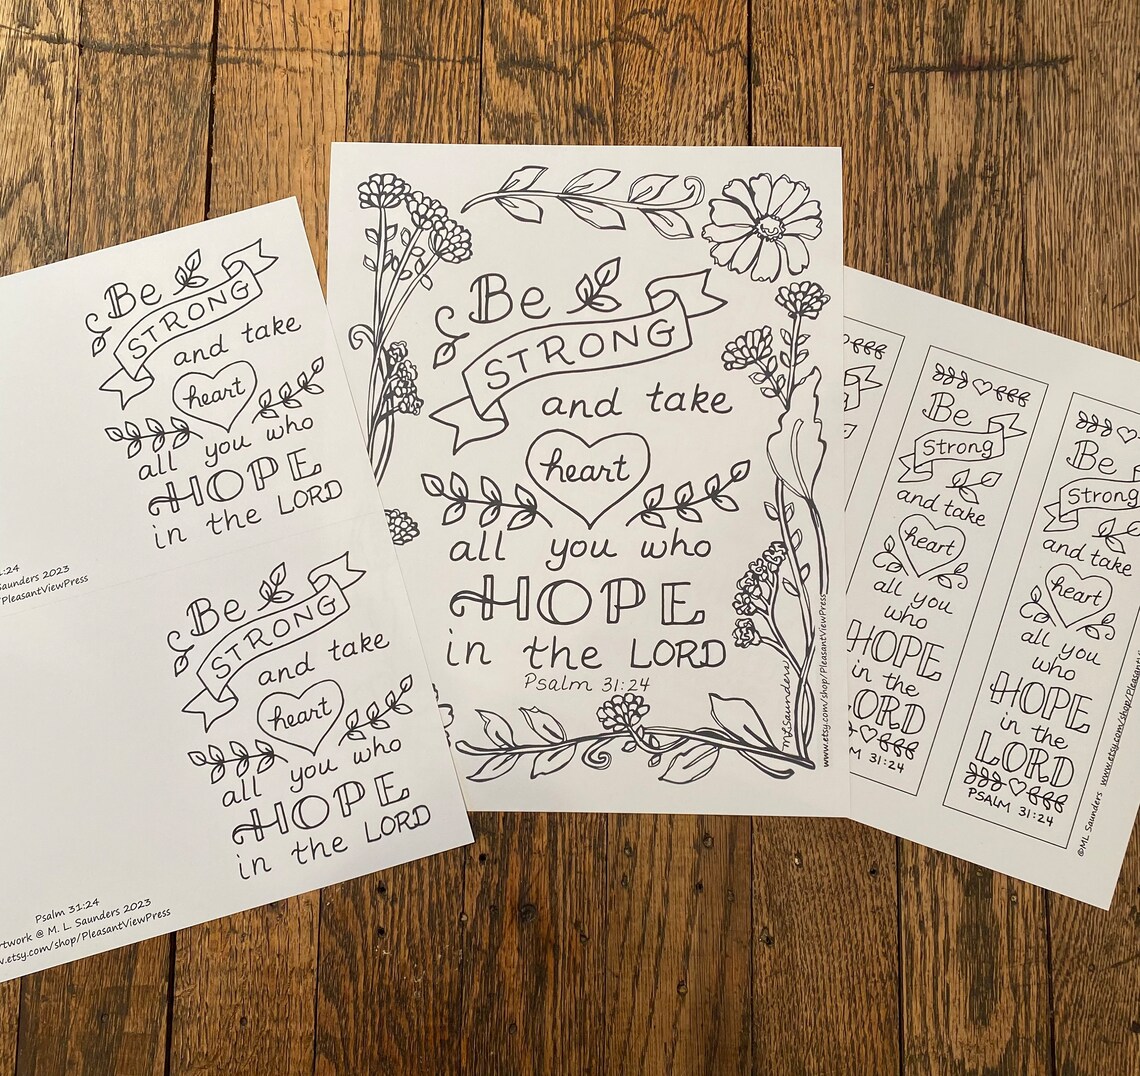 Be
STRONG
and take
heart
all you who
HOPE
in the LORD
:24
Saunders 2023
/PleasantViewPress
Be
STRONG
and take
heart
all you who
HOPE
in the LORD
Psalm 31:24
rtwork @ M. L. Saunders 2023
w.etsy.com/shop/PleasantViewPress
Be
STRONG
and take
heart
all you who
HOPE
in the LORD
Psalm 31:24
MLSaunders
www.etsy.com/shop/PleasantViewPress
Be
Strong
and take
heart
all you
who
HOPE
in the
LORD
M 31:24
Be
Strong
and take
heart
all you
who
HOPE
in the
LORD
PSALM 31:24
©ML Saunders www.etsy.com/shop/Pleasant